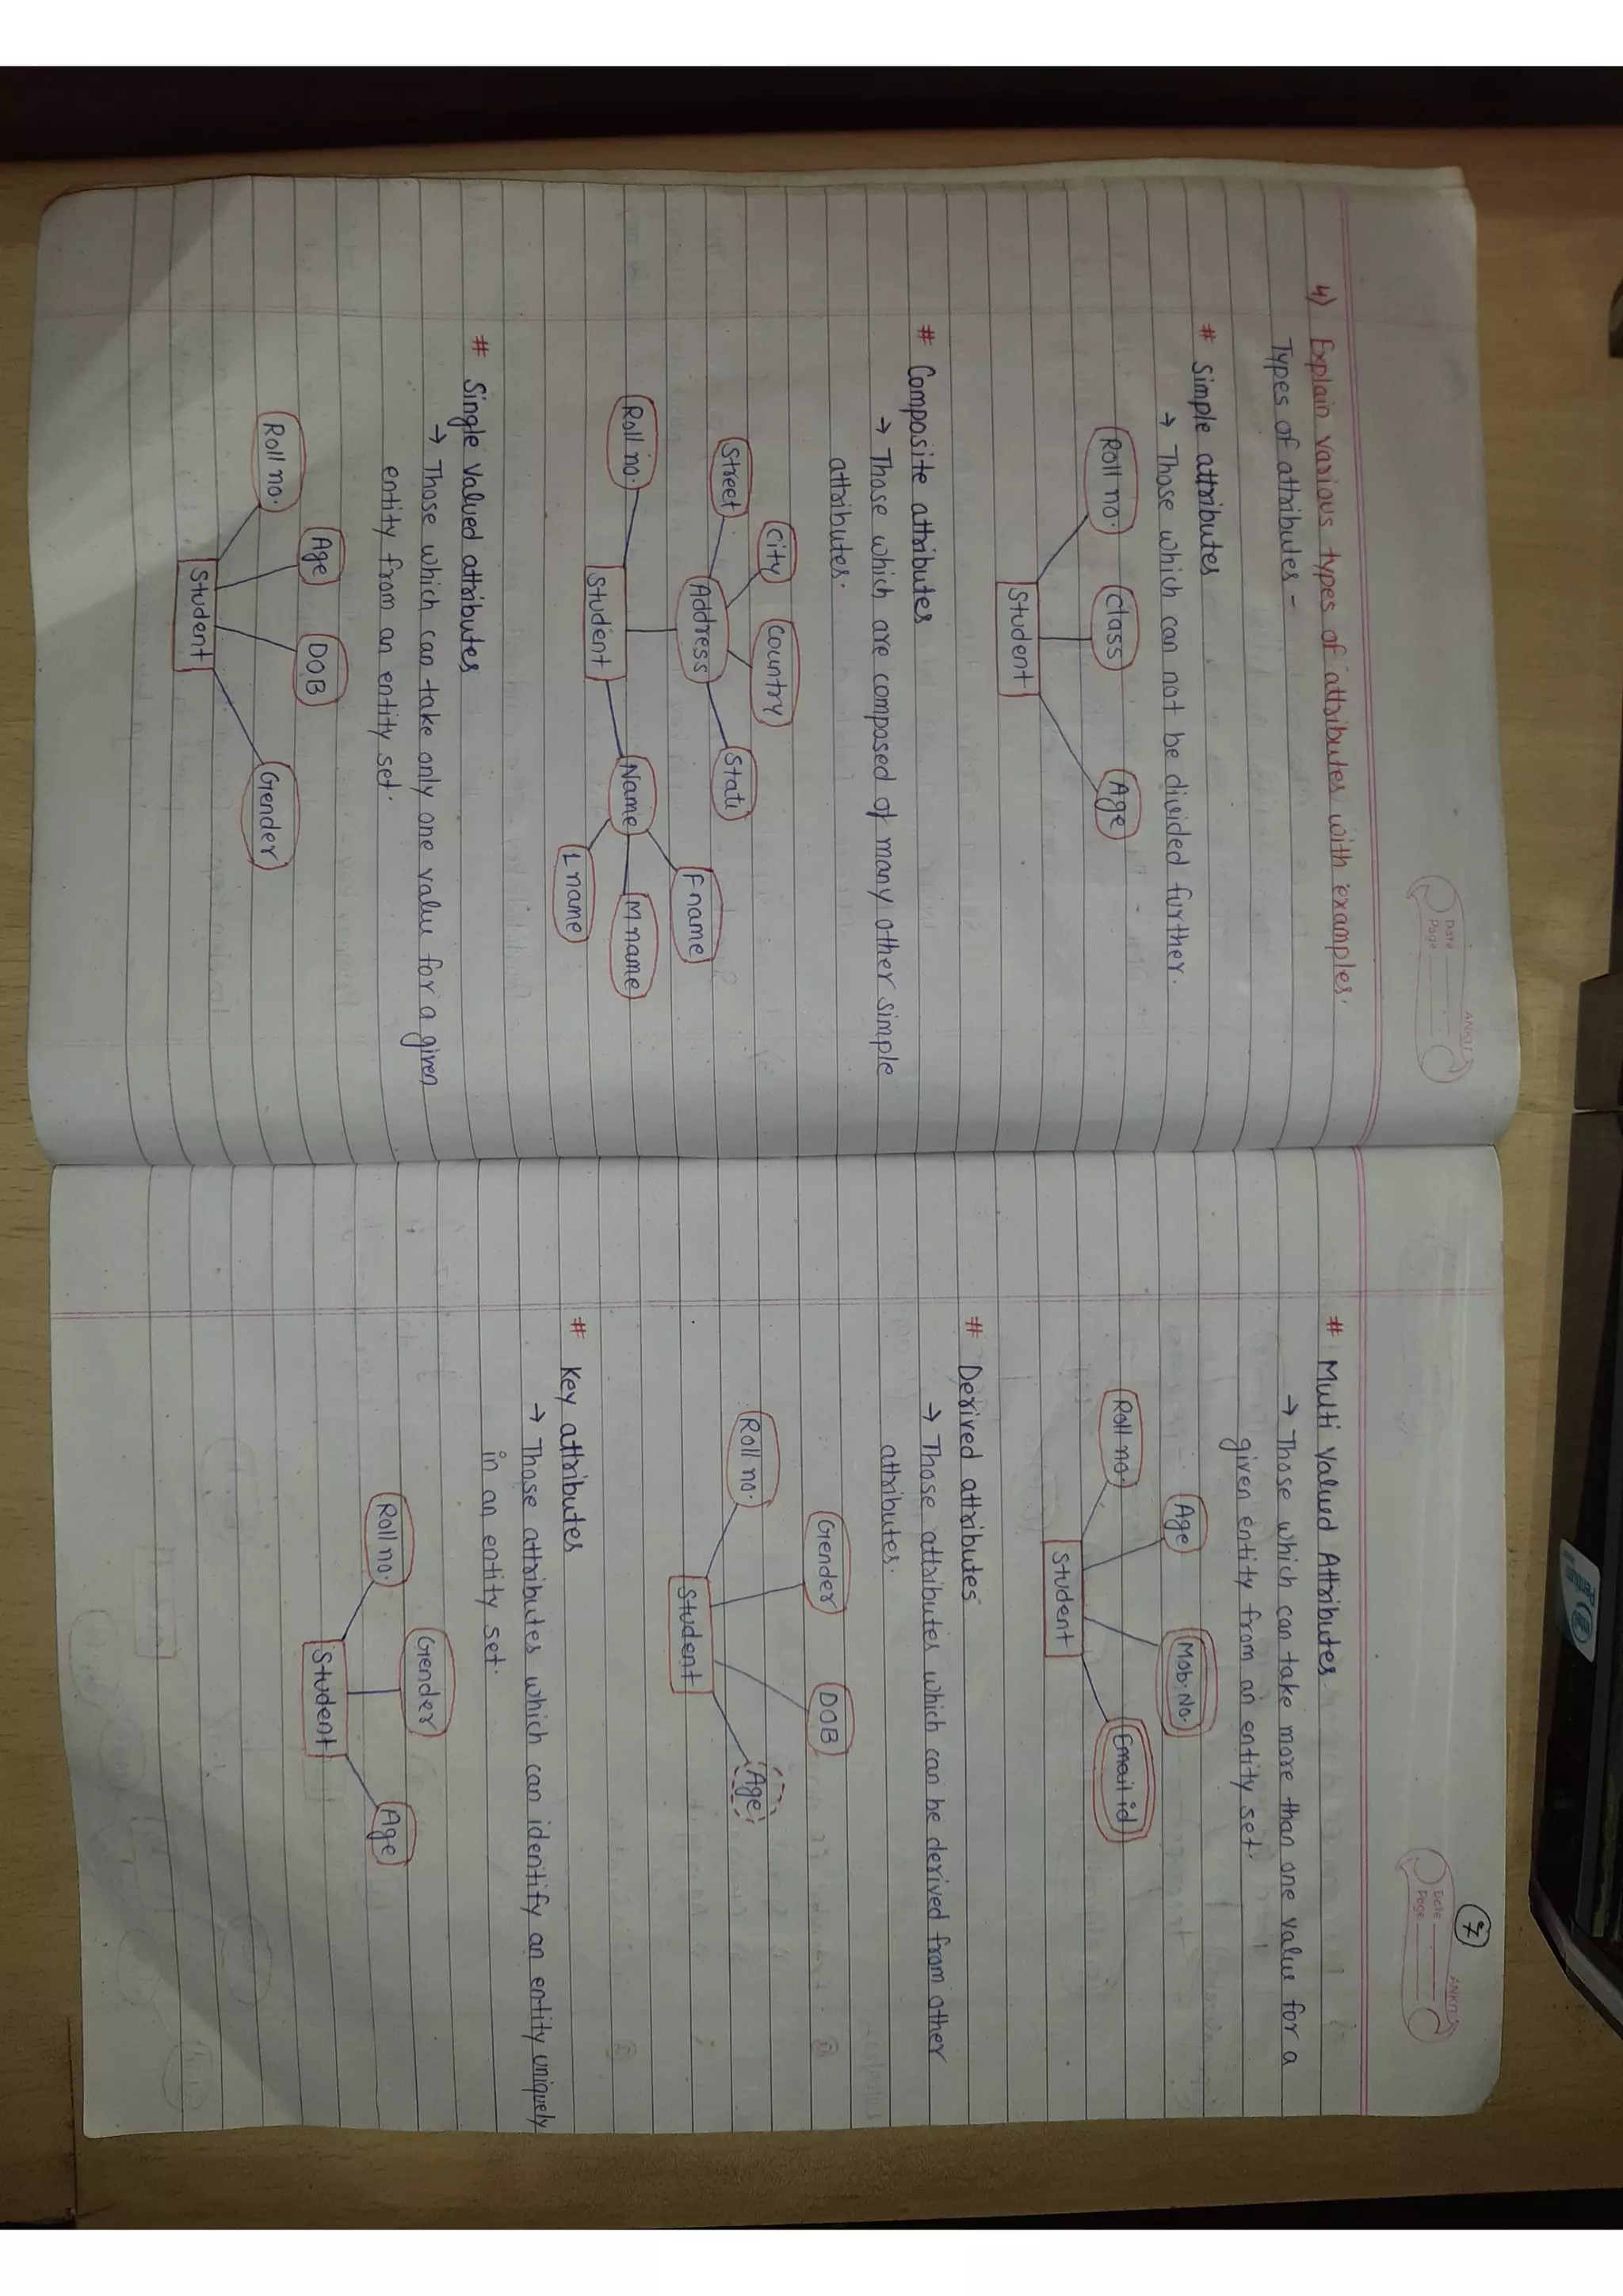 ANKIT
Date
Page
4) Explain various types of attributes with examples.
Types of attributes -
# Simple attributes
→ Those which can not be divided further.
Roll no. Class Age
Student
# Composite attributes
→ Those which are composed of many other simple
attributes.
City Country
Street State
Address
Roll no. Name Fname
Student Mname
Lname
# Single Valued attributes
→ Those which can take only one value for a given
entity from an entity set.
Age DOB
Roll no. Gender
Student
7
ANKIT
Date
Page
# Multi Valued Attributes
→ Those which can take more than one value for a
given entity from an entity set.
Age Mob. No.
Roll no. Email id
Student
# Derived attributes
→ Those attributes which can be derived from other
attributes.
Gender DOB
Roll no. Age
Student
# Key attributes
→ Those attributes which can identify an entity uniquely
in an entity set.
Gender
Roll no. Age
Student